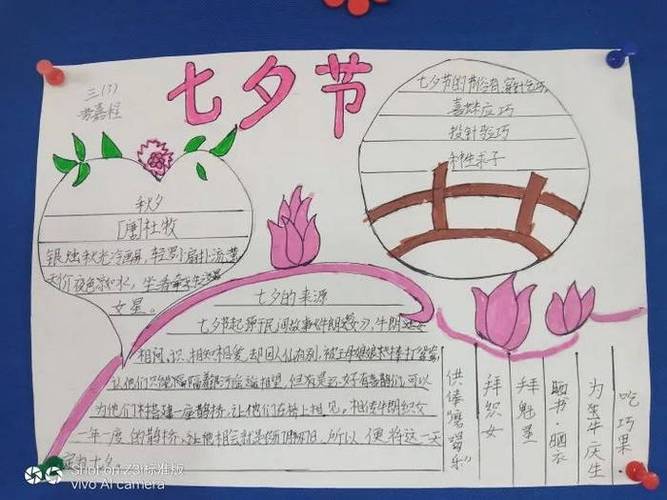 七夕节
三(7)
秋夕
[唐]杜牧
银烛秋光冷画屏,轻罗小扇扑流萤
天阶夜色凉如水,坐看牵牛织
女星。
七夕节的节俗有:穿针乞巧,
喜蛛应巧
投针验巧
种生求子
七夕的来源
七夕节起源于民间故事《牛郎织女》,牛郎织女
相同、识、相知相爱,却因人仙有别,被王母娘娘
让他们只能隔着银河遥遥相望,但
为他们搭建一座鹊桥,让他们在桥上相见,相传牛郎织女
一年一度的鹊桥,让他相会就是 所以,便将这一天
定为七夕
供偉"磨喝乐"
拜织女
拜魁星
晒书·晒衣
为牛庆生
吃巧果
Shot on Z3i标准版
vivo AI camera